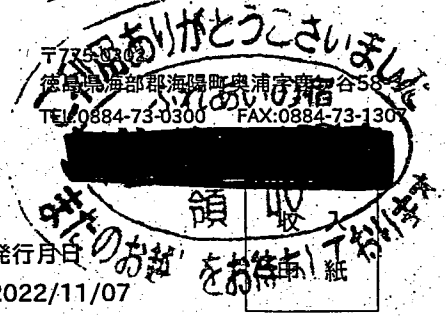 ご利用ありがとうございました
徳島県海部郡海陽町奥浦字鹿ヶ谷58
ふれあいの宿
TEL:0884-73-0300 FAX:0884-73-1307
領収
収入
印紙
またのお越しをお待ちしております
発行月日
2022/11/07